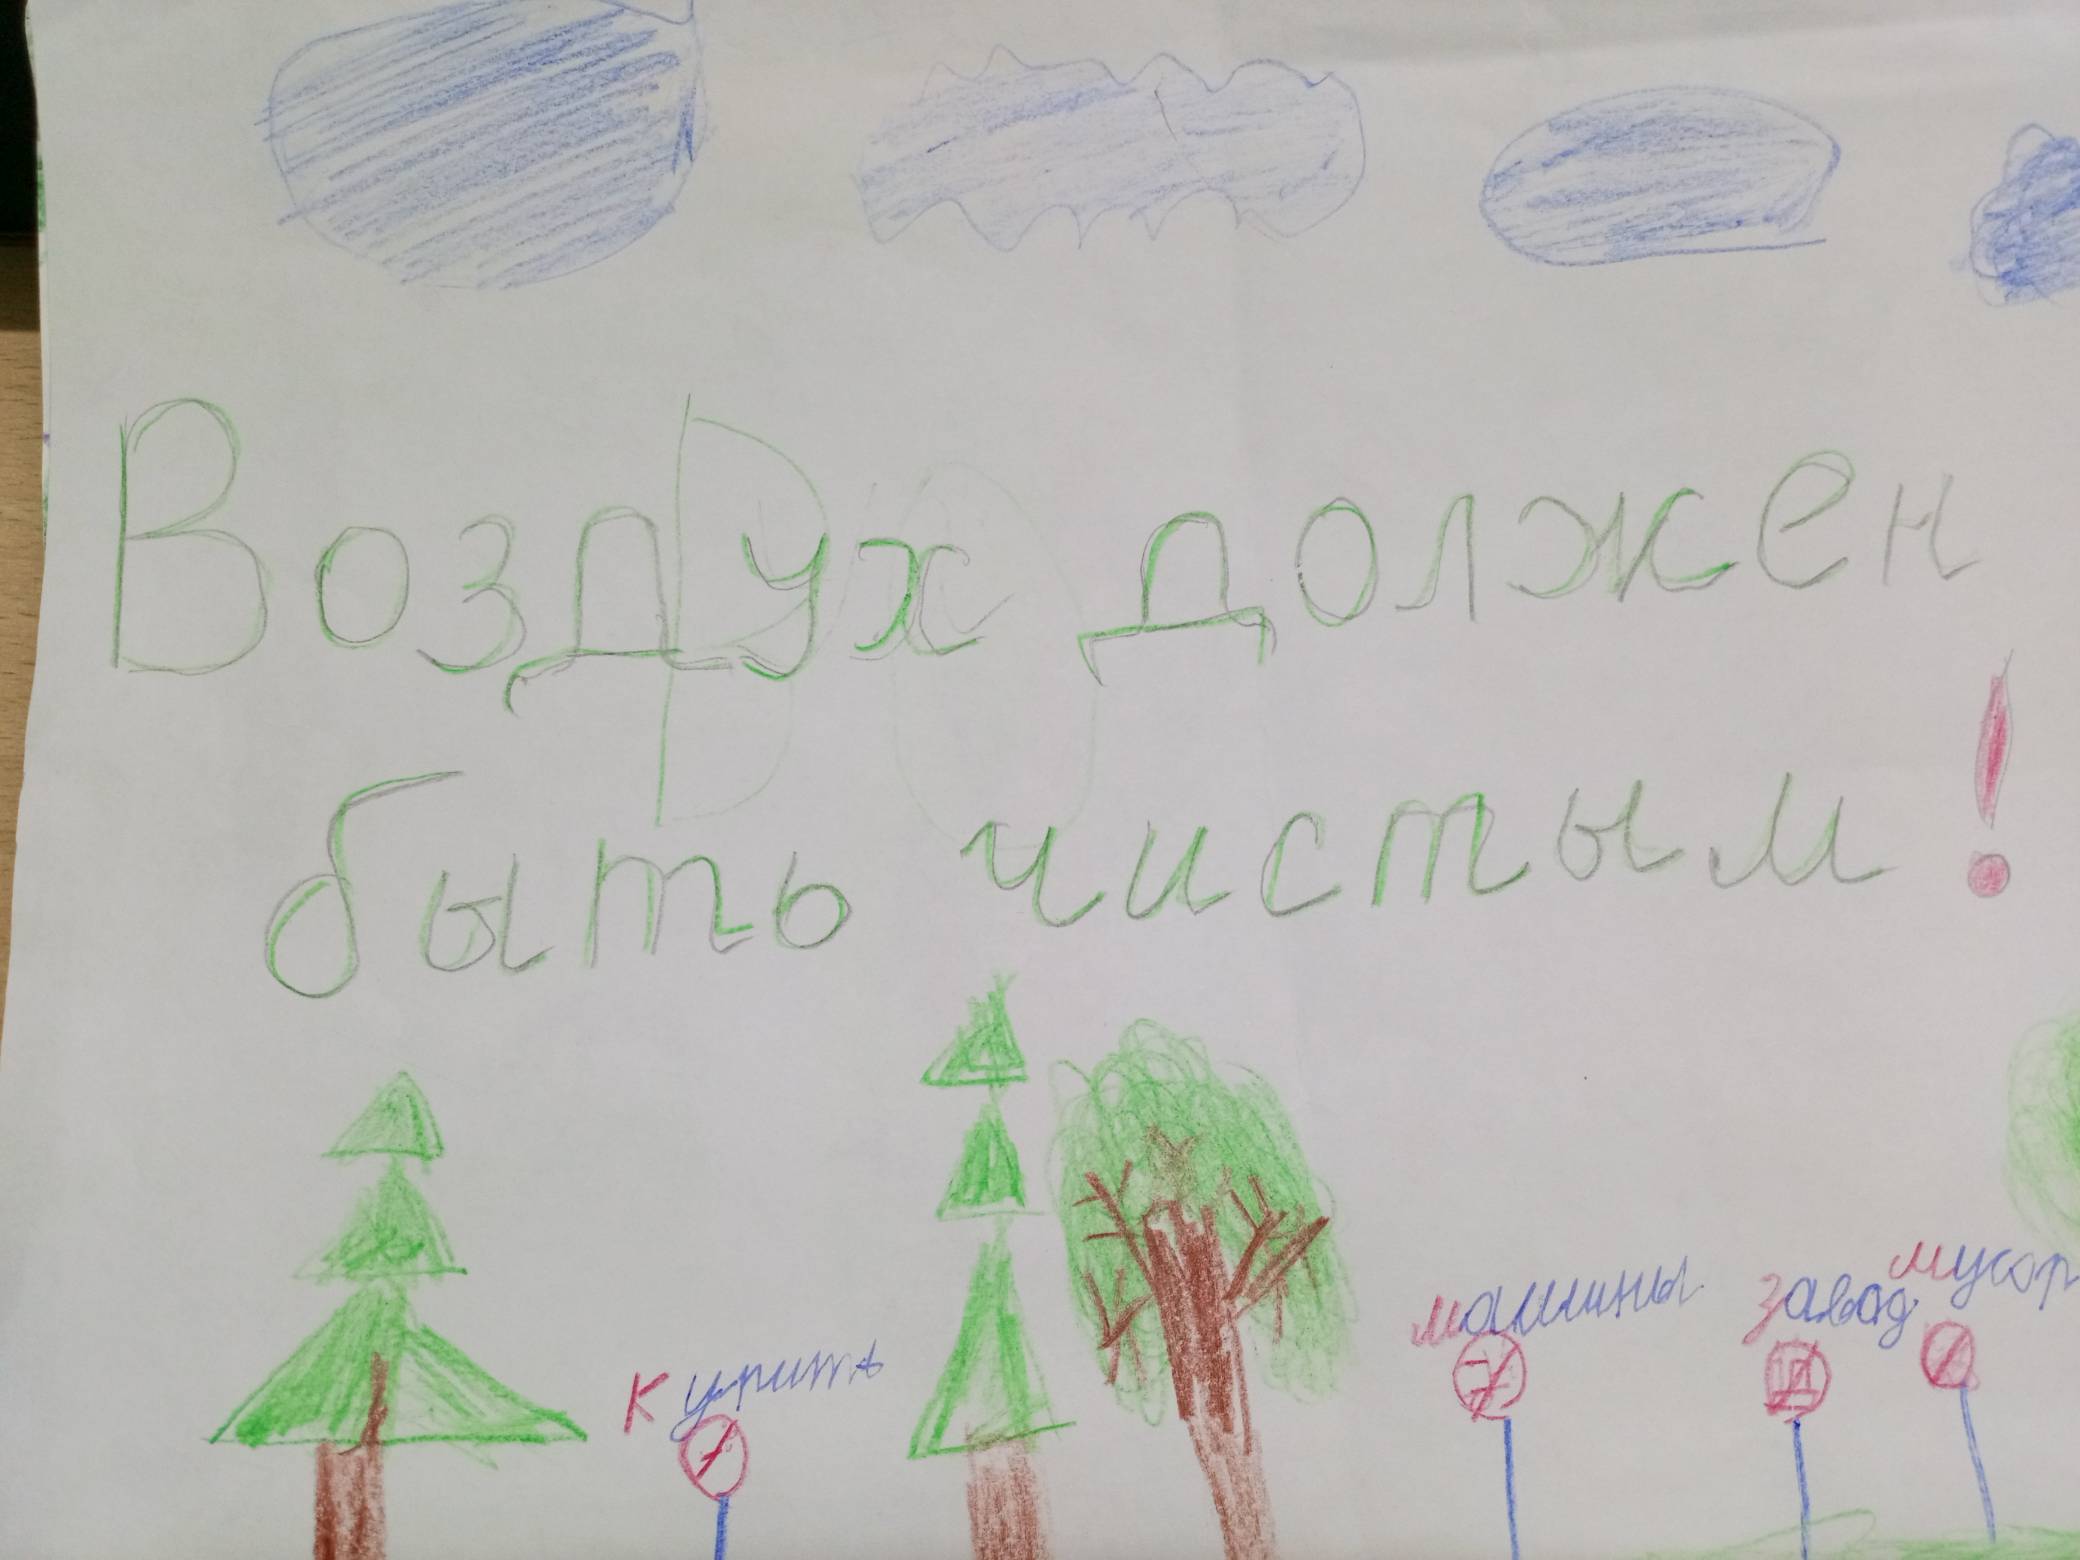 Воздух должен
быть чистым!
Курить
машины
завод
мусор